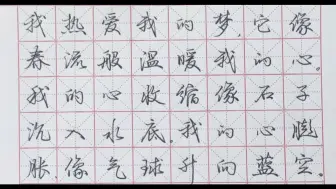 我热爱我的梦,它像
春流般温暖我的心。
我的心收缩像石子
沉入水底,我的心膨
胀像气球升向蓝空。